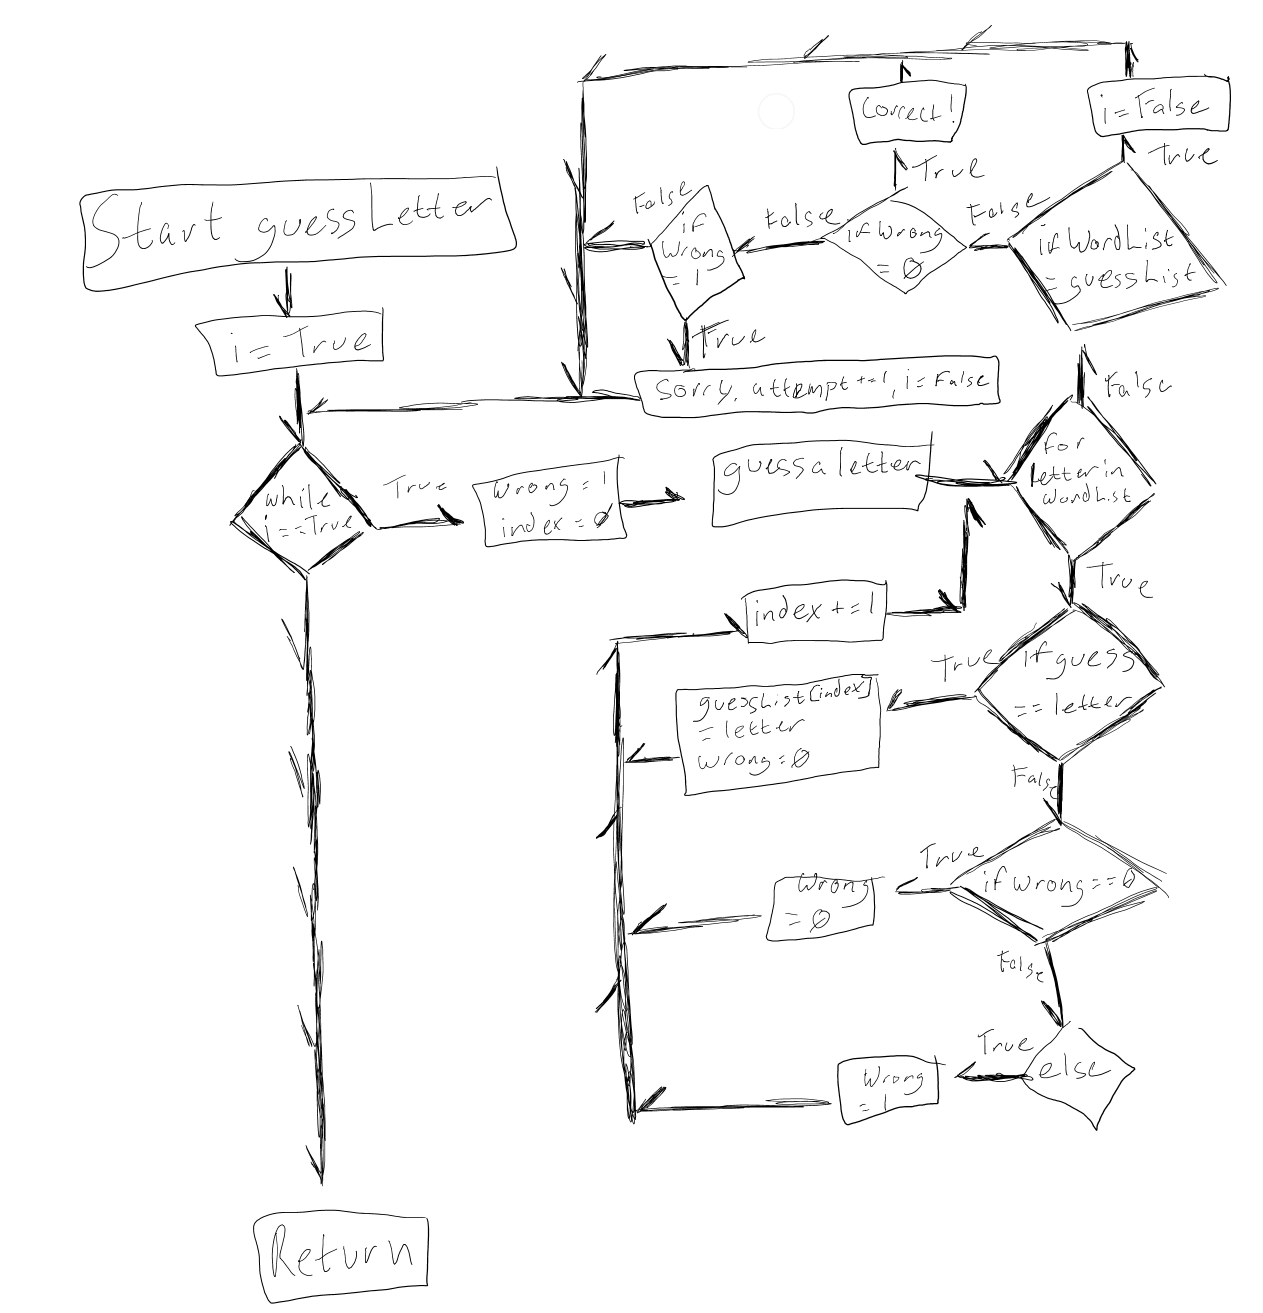 Start guessLetter
i = True
while
i == True
True
Wrong = 1
index = 0
guess a letter
for
Letter in
WordList
True
if guess
== letter
True
guessList[index]
= letter
wrong = 0
False
if wrong == 0
True
Wrong
= 0
False
else
True
Wrong
= 1
index += 1
False
if WordList
= guessList
True
i = False
False
if Wrong
= 0
True
Correct!
False
if
Wrong
= 1
False
True
Sorry, attempt += 1, i = False
Return